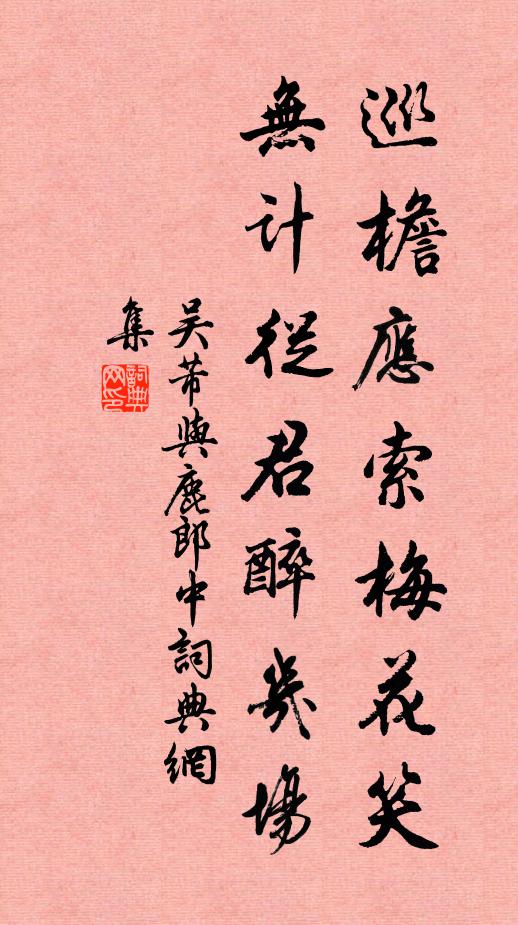 巡檐應索梅花笑
無計從君醉幾場
吳芾與鹿郎中詞典網
集
詞典網印